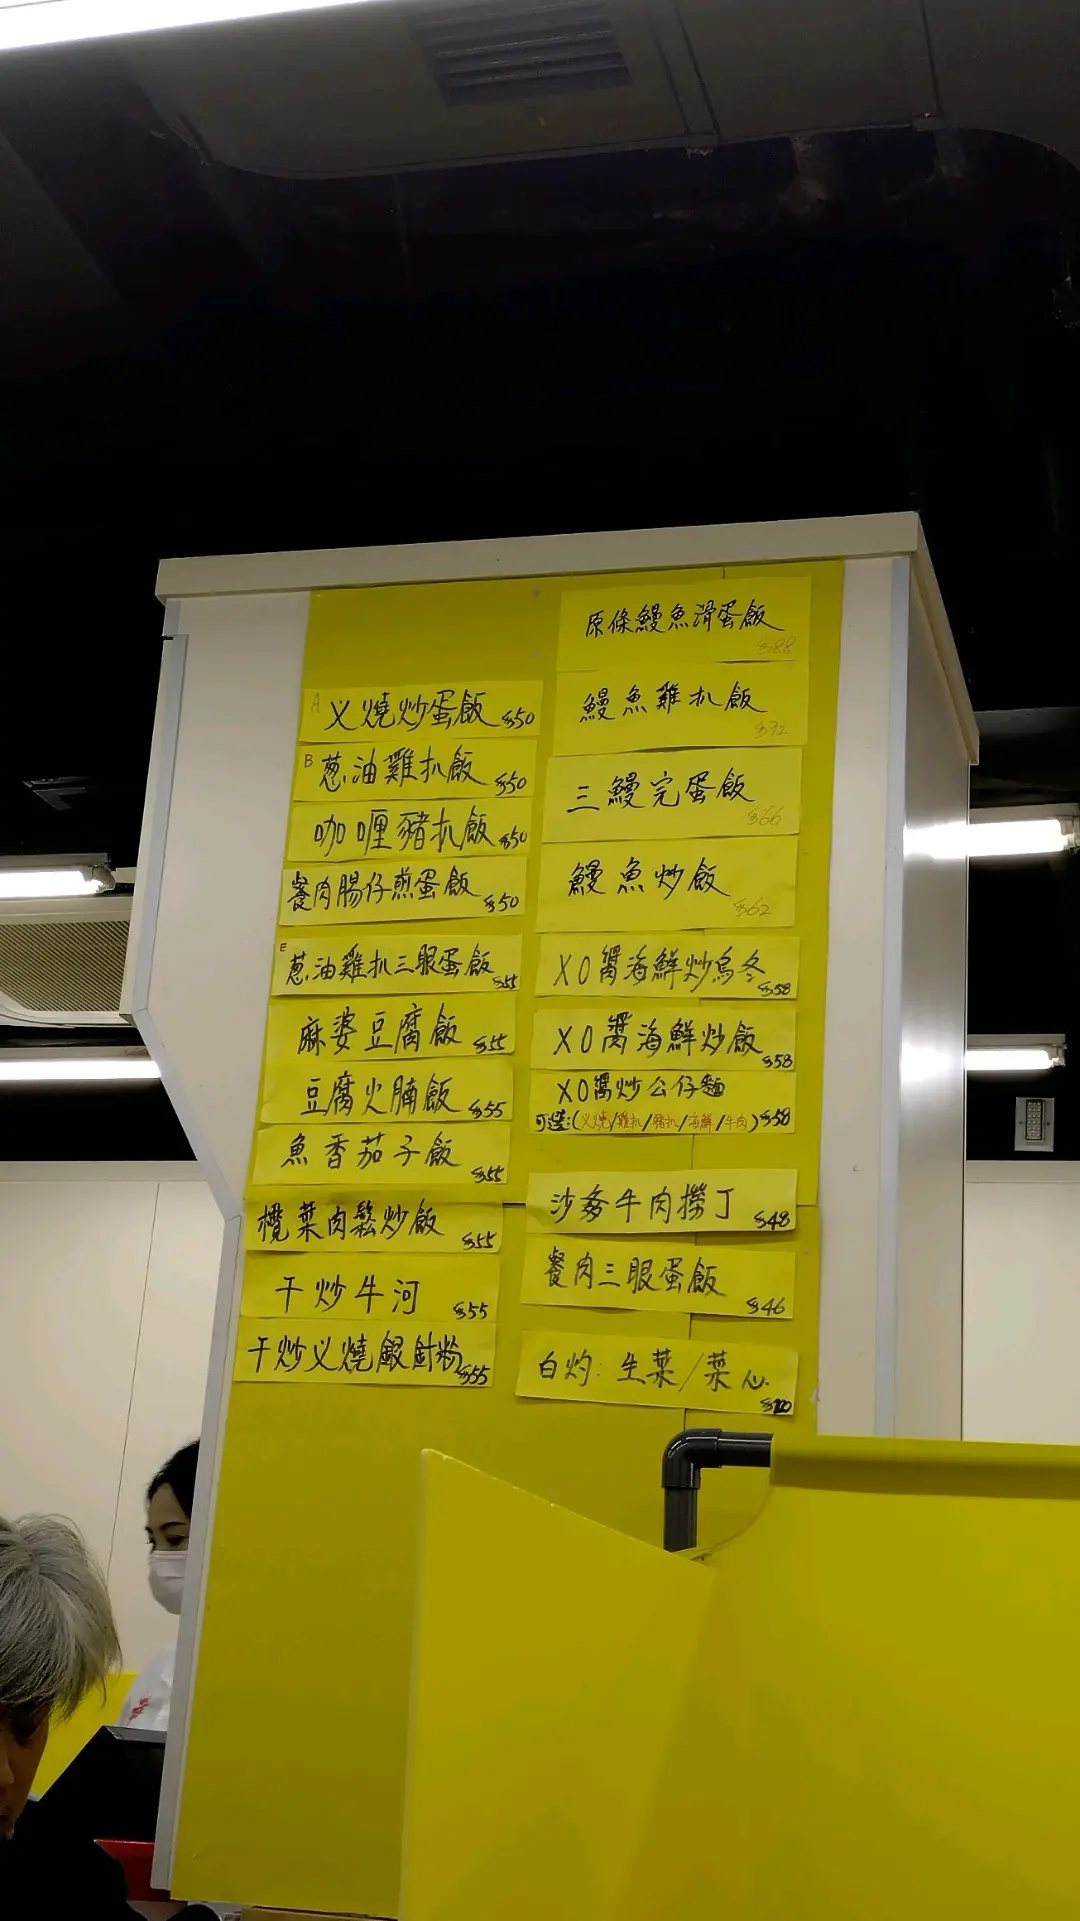 A 义燒炒蛋飯 $50
B 葱油雞扒飯 $50
咖喱豬扒飯 $50
餐肉腸仔煎蛋飯 $50
E 葱油雞扒三眼蛋飯 $55
麻婆豆腐飯 $55
豆腐火腩飯 $55
魚香茄子飯 $55
欖菜肉鬆炒飯 $55
干炒牛河 $55
干炒义燒銀針粉 $55
原條鰻魚滑蛋飯 $88
鰻魚雞扒飯 $72
三鰻完蛋飯 $66
鰻魚炒飯 $62
XO醬海鮮炒烏冬 $58
XO醬海鮮炒飯 $58
XO醬炒公仔麵
可選:(义燒/雞扒/豬扒/海鮮/牛肉) $58
沙爹牛肉撈丁 $48
餐肉三眼蛋飯 $46
白灼:生菜/菜心